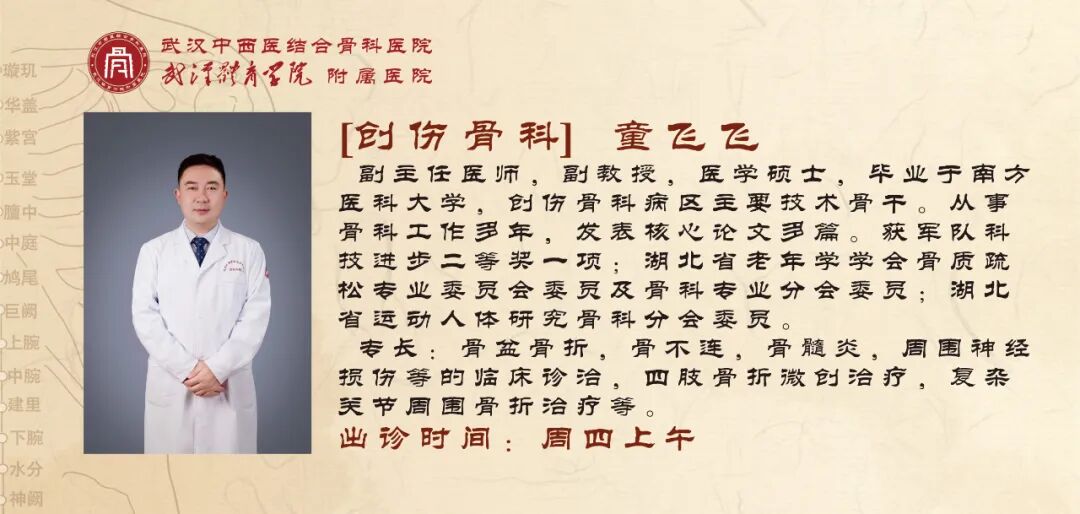 武汉中西医结合骨科医院
武汉体育学院 附属医院
[创伤骨科] 童飞飞
副主任医师，副教授，医学硕士，毕业于南方
医科大学，创伤骨科病区主要技术骨干。从事
骨科工作多年，发表核心论文多篇。获军队科
技进步二等奖一项；湖北省老年学学会骨质疏
松专业委员会委员及骨科专业分会委员；湖北
省运动人体研究骨科分会委员。
专长：骨盆骨折，骨不连，骨髓炎，周围神经
损伤等的临床诊治，四肢骨折微创治疗，复杂
关节周围骨折治疗等。
出诊时间：周四上午
璇玑
华盖
紫宫
玉堂
膻中
中庭
鸠尾
巨阙
上腕
中腕
建里
下腕
水分
神阙